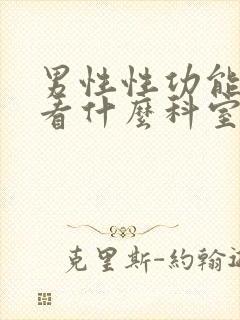 男性性功能
看什麼科室
克里斯-約翰遜